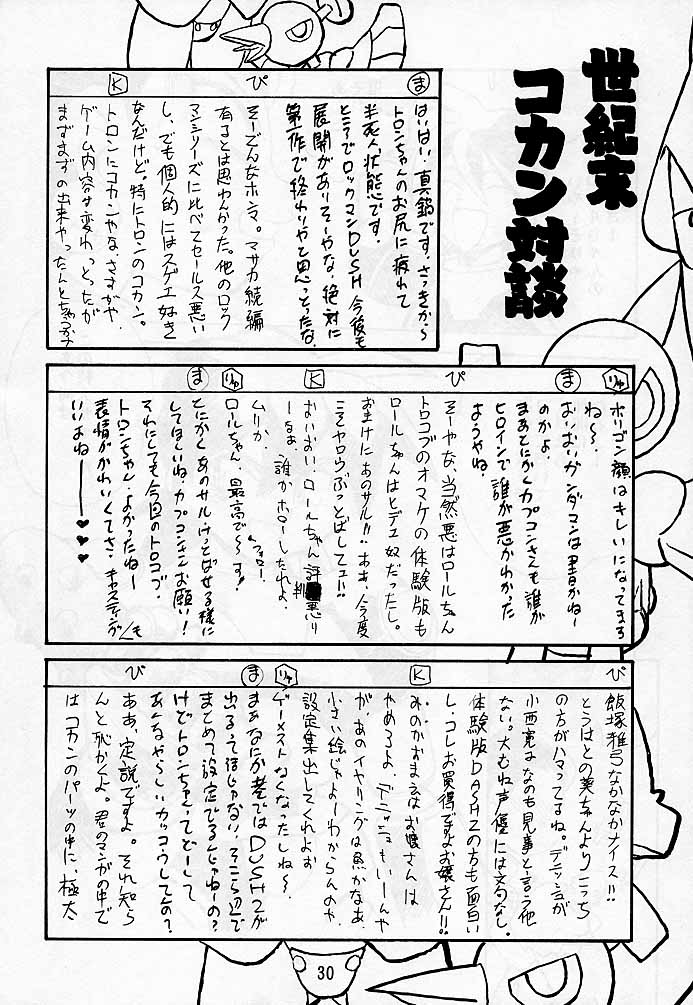 世紀末
コカン対談
ま
ぴ
K
はいはい、真鍋です。さっきから
トロンちゃんのお尻に疲れて
半死人状態です。
ところでロックマンDUSH 今後も
展開がありそーやな、絶対に
第一作で終わりやと思っとったな。
そーどんなホンマ。マサカ続編
有るとは思わんかった。他のロック
マンシリーズに比べてセールス悪い
し、でも個人的にはスゲエ好き
なんだけど。特にトロンのコカン。
トロンにコカンやな、さすがや、
ゲーム内容は変わっとったが
まずまずの出来やったんとちゃうか?
りゅ
ま
ぴ
K
りゅ
ま
ポリゴン顔はキレイになってます
ね〜。
おいおいガンダマンは里香かね
のかよ。
まあとにかくカプコンさんも誰が
ヒロインで誰が悪かわかった
ようやね。
そーやな、当然悪はロールちゃん
トロコブのオマケの体験版も
ロールちゃんはヒデェ奴だったし。
おまけにあのサル!!ああ、今度
こそヤロウぶっとばしてェ!!
おいおい、ロールちゃん評悪い
なぁ、誰かホローしたれよ。
フォロー
ムリか
ロールちゃん、最高で〜す!
とにかくあのサルけっとばせる様に
してほしいね、カプコンさんお願い!
それにしても今回のトロコブ
トロンちゃん、よかったね〜
表情がかわいくてさ、キャスティングも
いいよね――♥♥♥
ぴ
K
りゅ
ま
ぴ
飯塚雅弓なかなかナイス!!
とうはとの美ちゃんよりこっち
の方がハマってるね。デニッシュが
小西寛はなのも見事と言う他
ない。大むね声優には文句なし。
体験版DASH2の方も面白い
し、コレお買得ですよお嬢さん!!
みのかおまえはお嬢さんは
やめろよ、デニッシュもいーんや
が、あのイヤリングは魚かなぁ、
小さい絵じゃよーわからんのや、
設定集出してくれよぉ
ゲーメストなくなったしね〜。
まあなにか巷ではDUSH2が
出るって話じゃない、そこら辺で
まとめて設定でるんじゃねーの?
けどトロンちゃんってどーして
あんなやらしいカッコウしてんの?
ああ、定説ですよ。それ知ら
んと恥かくよ。君のマンガの中で
はコカンのパーツの中に、極太
30